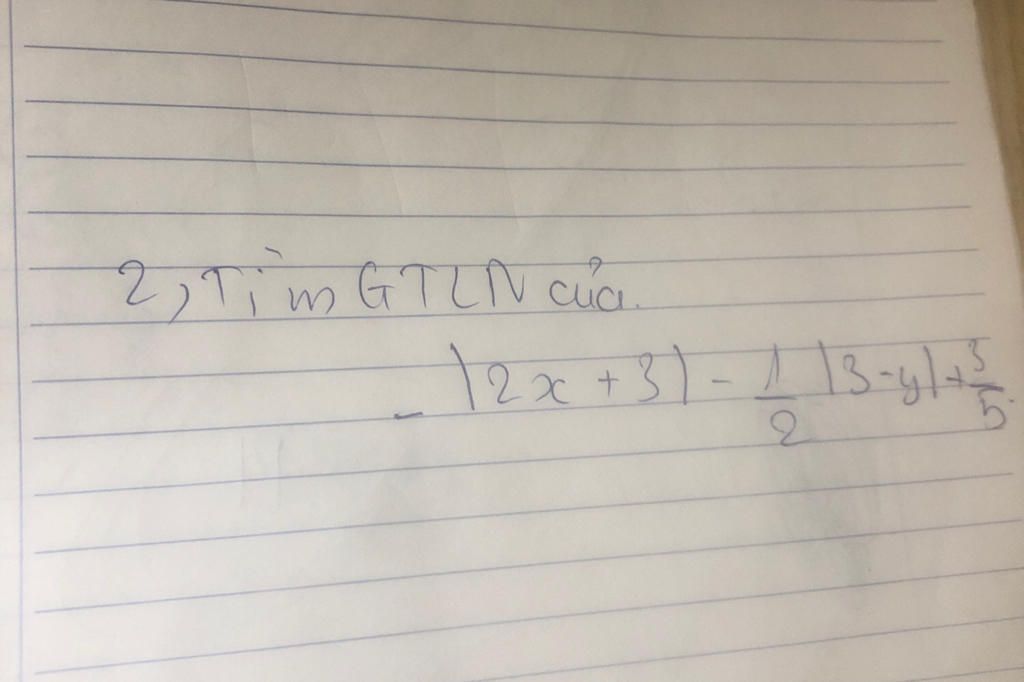 2, Tìm GTLN của.
- |2x + 3| - 1/2 |3 - y| + 3/5.